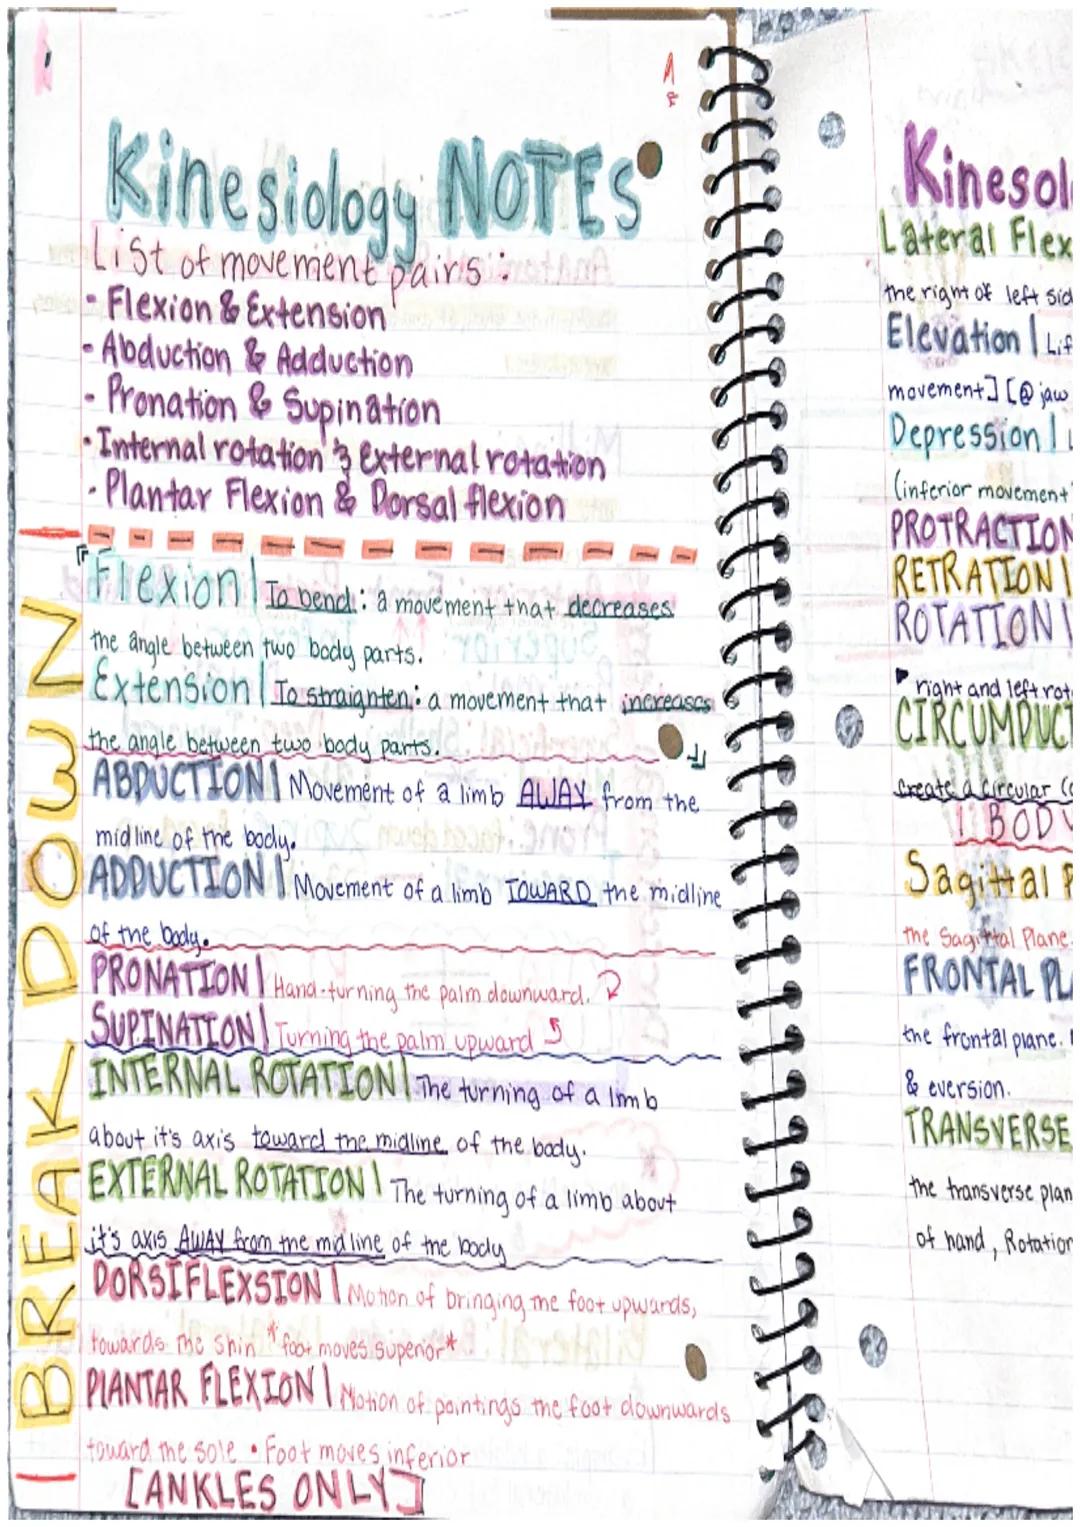 Kinesiology NOTES
List of movement pairs:
- Flexion & Extension
- Abduction & Adduction
- Pronation & Supination
- Internal rotation & external rotation
- Plantar Flexion & Dorsal flexion
BREAK DOWN
Flexion | To bend: a movement that decreases
the angle between two body parts.
Extension | To straighten: a movement that increases
the angle between two body parts.
ABDUCTION | Movement of a limb AWAY from the
midline of the body.
ADDUCTION | Movement of a limb TOWARD the midline
of the body.
PRONATION | Hand-turning the palm downward.
SUPINATION | Turning the palm upward
INTERNAL ROTATION | The turning of a limb
about it's axis toward the midline of the body.
EXTERNAL ROTATION | The turning of a limb about
it's axis AWAY from the midline of the body
DORSIFLEXSION | Motion of bringing the foot upwards,
towards the shin *foot moves superior*
PLANTAR FLEXION | Motion of pointings the foot downwards
toward the sole • Foot moves inferior
[ANKLES ONLY]
Kinesol
Lateral Flex
the right of left sid
Elevation | Lif
movement] [@ jaw
Depression |
(inferior movement
PROTRACTION
RETRATION |
ROTATION |
right and left rot
CIRCUMDUCT
create a circular (c
BODY
Sagittal P
the Sagittal Plane.
FRONTAL PLA
the frontal plane.
& eversion.
TRANSVERSE
the transverse plan
of hand, Rotation